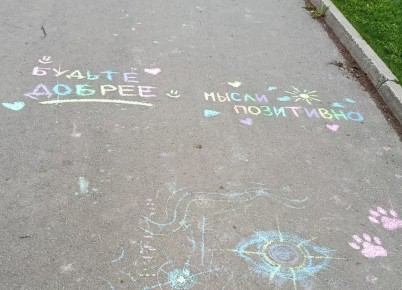 БУДЬТЕ
ДОБРЕЕ
МЫСЛИ
ПОЗИТИВНО